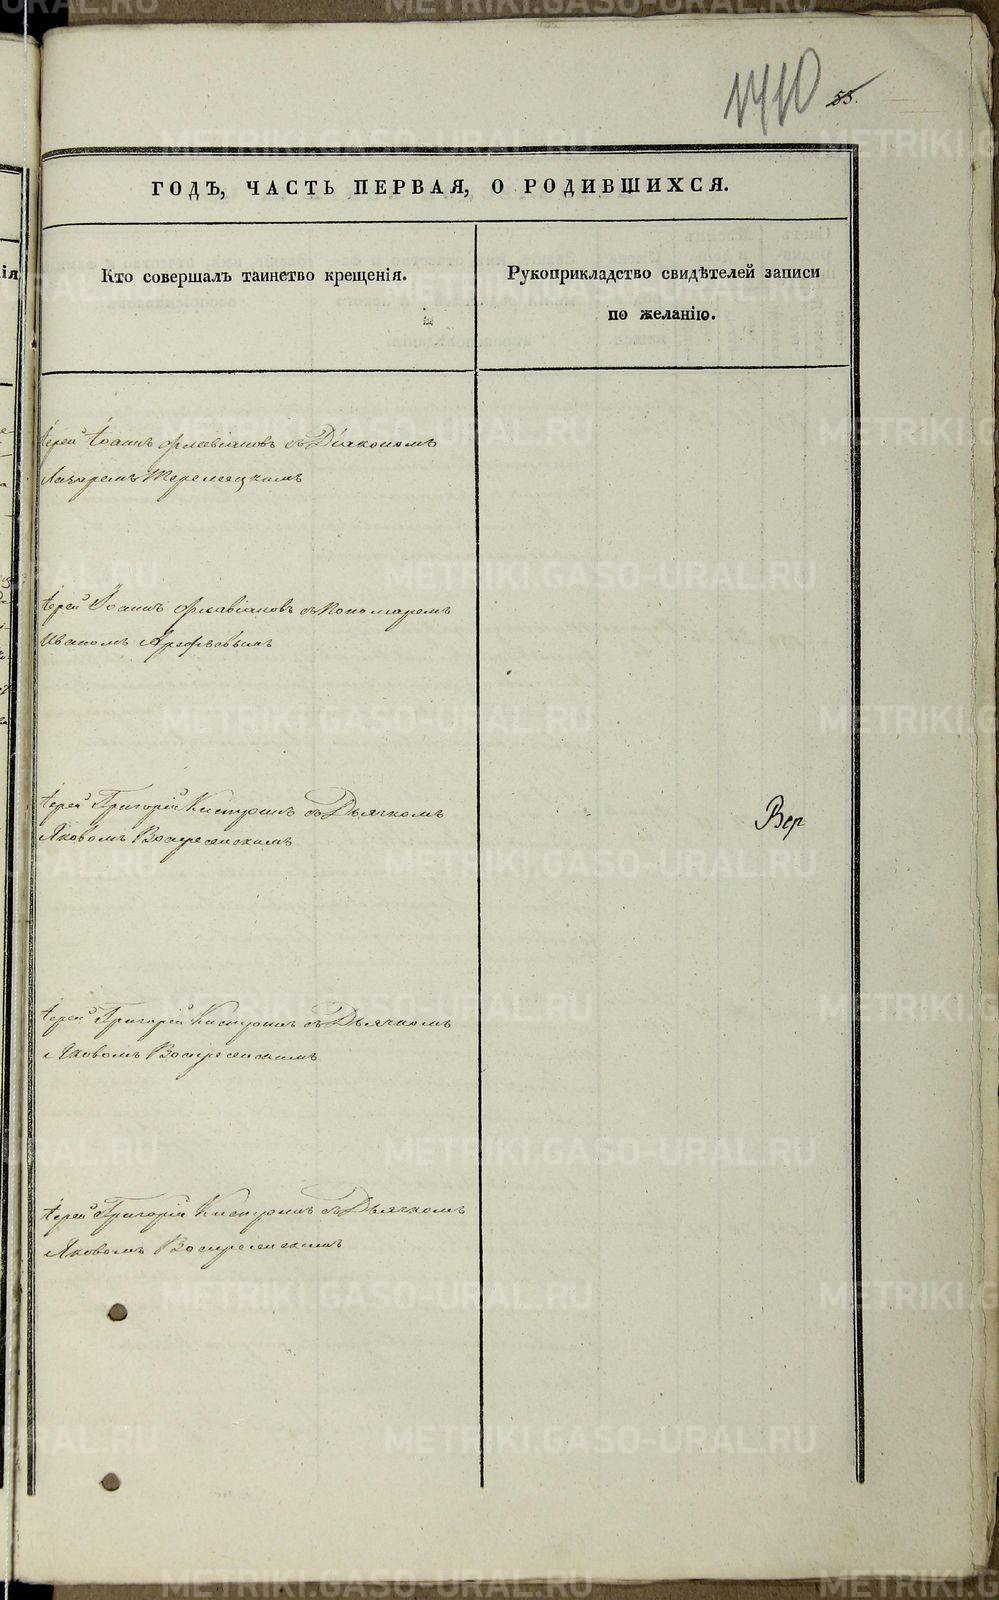 1410 55.
ГОДЪ, ЧАСТЬ ПЕРВАЯ, О РОДИВШИХСЯ.
Кто совершалъ таинство крещенія.
Рукоприкладство свидѣтелей записи
по желанію.
Іерей Іоаннъ Флавіановъ съ Діакономъ
Лазаремъ
Іерей Іоаннъ Флавіановъ съ Пономаремъ
Иваномъ Арефьевымъ
Іерей Григорій съ Дьячкомъ
Яковомъ Воскресенскимъ
Вер
Іерей Григорій съ Дьячкомъ
Яковомъ Воскресенскимъ
Іерей Григорій съ Дьячкомъ
Яковомъ Воскресенскимъ
METRIKI.GASO-URAL.RU